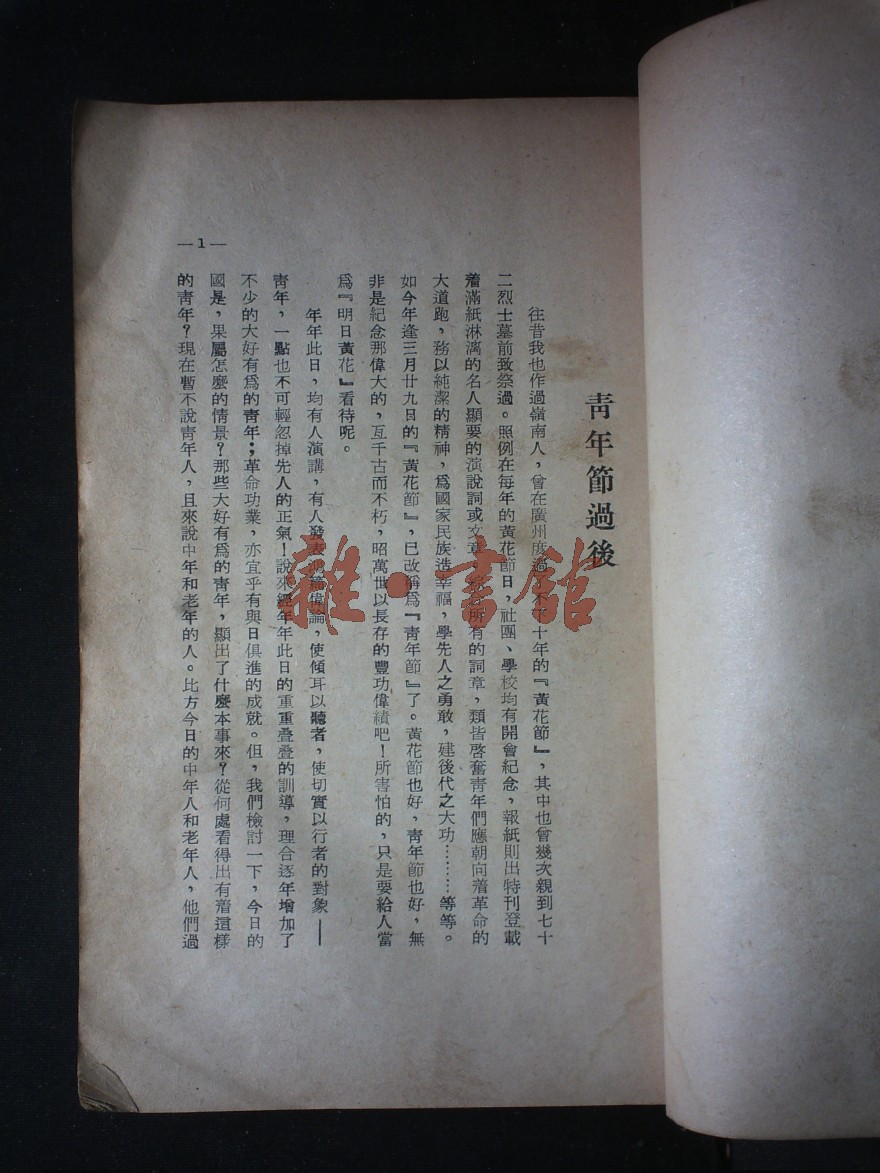 青年節過後
往昔我也作過嶺南人，曾在廣州度過了不下十年的『黃花節』，其中也曾幾次親到七十
二烈士墓前致祭過。照例在每年的黃花節日，社團、學校均有開會紀念，報紙則出特刊登載
着滿紙淋漓的名人顯要的演說詞或文章，所有的詞章，類皆啓奮靑年們應朝向着革命的
大道跑，務以純潔的精神，爲國家民族造幸福，學先人之勇敢，建後代之大功………等等。
如今年逢三月廿九日的『黃花節』，已改稱爲『靑年節』了。黃花節也好，靑年節也好，無
非是紀念那偉大的，亙千古而不朽，昭萬世以長存的豐功偉績吧！所害怕的，只是要給人當
爲『明日黃花』看待呢。
年年此日，均有人演講，有人發表偉論，使傾耳以聽者，使切實以行者的對象——
靑年，一點也不可輕忽掉先人的正氣！說來經年年此日的重重叠叠的訓導，理合逐年增加了
不少的大好有爲的靑年；革命功業，亦宜乎有與日俱進的成就。但，我們檢討一下，今日的
國是，果屬怎麼的情景？那些大好有爲的靑年，顯出了什麼本事來？從何處看得出有着這樣
的靑年？現在暫不說靑年人，且來說中年和老年的人。比方今日的中年人和老年人，他們過
—1—
雜·書館